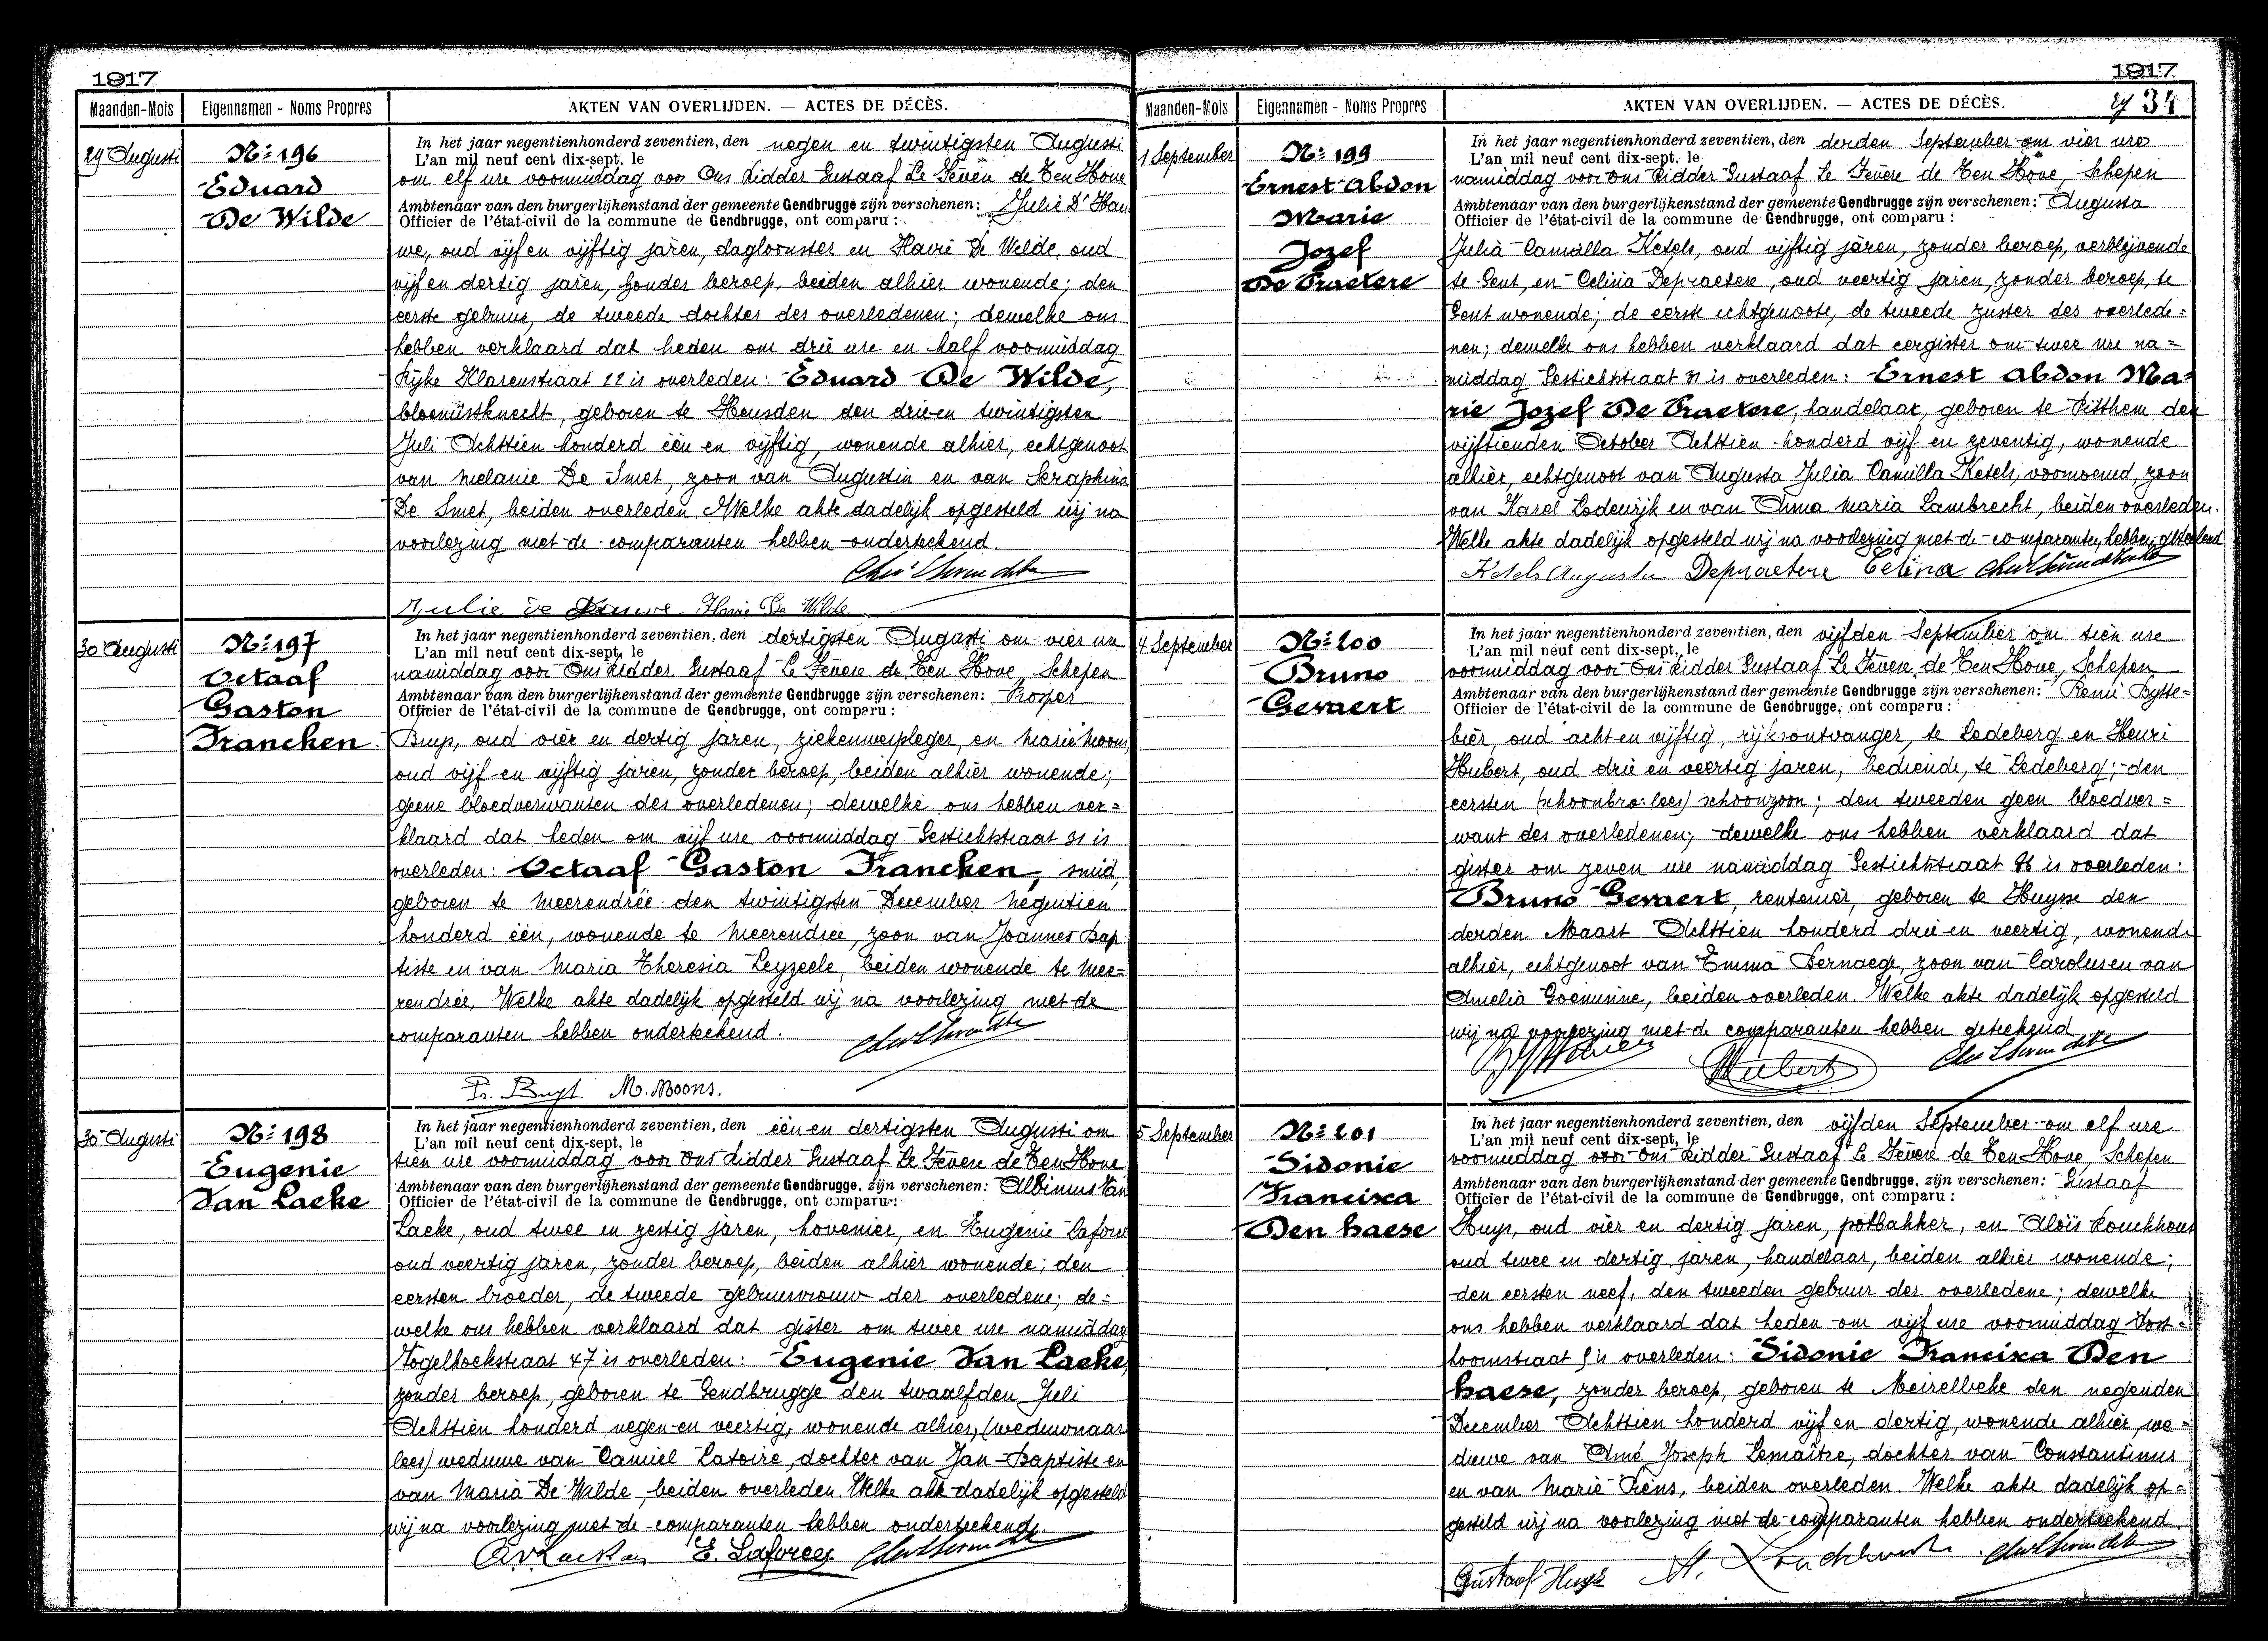 1917
Maanden-Mois
Eigennamen - Noms Propres
AKTEN VAN OVERLIJDEN. — ACTES DE DÉCÈS.
29 Augusti
Nº 196
Eduard
De Wilde
In het jaar negentienhonderd zeventien, den negen en twintigsten Augusti
L'an mil neuf cent dix-sept, le
om elf ure voormiddag voor Ons Ridder Gustaaf Le Fevere de Ten Hove
Ambtenaar van den burgerlijkenstand der gemeente Gendbrugge zijn verschenen: Julie D'Hau
Officier de l'état-civil de la commune de Gendbrugge, ont comparu :
we, oud vijf en vijftig jaren, dagloonster en De Wilde, oud
vijf en dertig jaren, zonder beroep, beiden alhier wonende; den
eerste gebuur, de tweede dochter des overledenen; dewelke ons
hebben verklaard dat heden om drie ure en half voormiddag
Rijke Klarenstraat 22 is overleden: Eduard De Wilde,
bloemistknecht, geboren te Heusden den drie en twintigsten
Juli Achttien honderd één en vijftig, wonende alhier, echtgenoot
van Melanie De Smet, zoon van Augustin en van Seraphina
De Smet, beiden overleden. Welke akte dadelijk opgesteld wij na
voorlezing met de comparanten hebben onderteekend.
Julie De De Wilde
30 Augusti
Nº 197
Octaaf
Gaston
Francken
In het jaar negentienhonderd zeventien, den dertigsten Augusti om vier ure
L'an mil neuf cent dix-sept, le
namiddag voor Ons Ridder Gustaaf Le Fevere de Ten Hove, Schepen
Ambtenaar van den burgerlijkenstand der gemeente Gendbrugge zijn verschenen: Prosper
Officier de l'état-civil de la commune de Gendbrugge, ont comparu :
oud vier en dertig jaren, ziekenverpleger, en Marie Moons,
oud vijf en vijftig jaren, zonder beroep, beiden alhier wonende;
geene bloedverwanten des overledenen; dewelke ons hebben ver=
klaard dat heden om vijf ure voormiddag Gestichtstraat 31 is
overleden: Octaaf Gaston Francken, smid,
geboren te Meerendrée den twintigsten December negentien
honderd één, wonende te Meerendree, zoon van Joannes Bap
tiste en van Maria Theresia Leyzeele, beiden wonende te Mee=
rendrée, Welke akte dadelijk opgesteld wij na voorlezing met de
comparanten hebben onderteekend.
M. Moons.
30 Augusti
Nº 198
Eugenie
Van Laeke
In het jaar negentienhonderd zeventien, den één en dertigsten Augusti om
L'an mil neuf cent dix-sept, le
tien ure voormiddag voor Ons Ridder Gustaaf Le Fevere de Ten Hove
Ambtenaar van den burgerlijkenstand der gemeente Gendbrugge, zijn verschenen: Albinus Van
Officier de l'état-civil de la commune de Gendbrugge, ont comparu :
Laeke, oud twee en zestig jaren, hovenier, en Eugenie Laforce
oud veertig jaren, zonder beroep, beiden alhier wonende; den
eersten broeder, de tweede gebuurvrouw der overledene; de=
welke ons hebben verklaard dat gister om twee ure namiddag
Vogelhoekstraat 47 is overleden: Eugenie Van Laeke,
zonder beroep, geboren te Gendbrugge den twaalfden Juli
Achttien honderd negen en veertig, wonende alhier, (weduwnaar
lees) weduwe van Camiel Latoire, dochter van Jan-Baptiste en
van Maria De Wilde, beiden overleden. Welke akte dadelijk opgesteld
wij na voorlezing met de comparanten hebben onderteekend.
E. Laforce
1917
34
Maanden-Mois
Eigennamen - Noms Propres
AKTEN VAN OVERLIJDEN. — ACTES DE DÉCÈS.
1 September
Nº 199
Ernest Abdon
Marie
Jozef
De Praetere
In het jaar negentienhonderd zeventien, den derden September om vier ure
L'an mil neuf cent dix-sept, le
namiddag voor Ons Ridder Gustaaf Le Fevere de Ten Hove, Schepen
Ambtenaar van den burgerlijkenstand der gemeente Gendbrugge zijn verschenen: Augusta
Officier de l'état-civil de la commune de Gendbrugge, ont comparu :
Julia Camilla Ketels, oud vijftig jaren, zonder beroep, verblijvende
te Gent, en Celina Depraetere, oud veertig jaren, zonder beroep, te
Gent wonende; de eerste echtgenoote, de tweede zuster des overlede=
nen; dewelke ons hebben verklaard dat eergister om twee ure na=
middag Gestichtstraat 31 is overleden: Ernest Abdon Ma=
rie Jozef De Praetere, handelaar, geboren te Pitthem den
vijftienden October Achttien honderd vijf en zeventig, wonende
alhier, echtgenoot van Augusta Julia Camilla Ketels, voornoemd, zoon
van Karel Lodewijk en van Anna Maria Lambrecht, beiden overleden.
Welke akte dadelijk opgesteld wij na voorlezing met de comparanten hebben geteekend
Ketels Augusta Depraetere Celina
4 September
Nº 200
Bruno
Gevaert
In het jaar negentienhonderd zeventien, den vijfden September om tien ure
L'an mil neuf cent dix-sept, le
voormiddag voor Ons Ridder Gustaaf Le Fevere de Ten Hove, Schepen
Ambtenaar van den burgerlijkenstand der gemeente Gendbrugge zijn verschenen: Remi Bytte=
Officier de l'état-civil de la commune de Gendbrugge, ont comparu :
bier, oud acht en vijftig, rijksontvanger, te Ledeberg en Henri
Hubert, oud drie en veertig jaren, bediende, te Ledeberg; den
eersten (schoonbro: lees) schoonzoon; den tweeden geen bloedver=
want des overledenen; dewelke ons hebben verklaard dat
gister om zeven ure namiddag Gestichtstraat 86 is overleden:
Bruno Gevaert, rentenier, geboren te Huysse den
derden Maart Achttien honderd drie en veertig, wonende
alhier, echtgenoot van Emma Bernaege, zoon van Carolus en van
Amelia Goeminne, beiden overleden. Welke akte dadelijk opgesteld
wij na voorlezing met de comparanten hebben geteekend
Hubert
5 September
Nº 201
Sidonie
Francisca
Den haese
In het jaar negentienhonderd zeventien, den vijfden September om elf ure
L'an mil neuf cent dix-sept, le
voormiddag voor Ons Ridder Gustaaf Le Fevere de Ten Hove, Schepen
Ambtenaar van den burgerlijkenstand der gemeente Gendbrugge, zijn verschenen: Gustaaf
Officier de l'état-civil de la commune de Gendbrugge, ont comparu :
Huys, oud vier en dertig jaren, potbakker, en Aloïs
oud twee en dertig jaren, handelaar, beiden alhier wonende;
den eersten neef, den tweeden gebuur der overledene; dewelke
ons hebben verklaard dat heden om vijf ure voormiddag
overleden: Sidonie Francisca Den
haese, zonder beroep, geboren te Meirelbeke den negenden
December Achttien honderd vijf en dertig, wonende alhier, we=
duwe van Amé Joseph Lemaître, dochter van Constantinus
en van Marie Piens, beiden overleden. Welke akte dadelijk op=
gesteld wij na voorlezing met de comparanten hebben onderteekend.
Gustaaf Huys